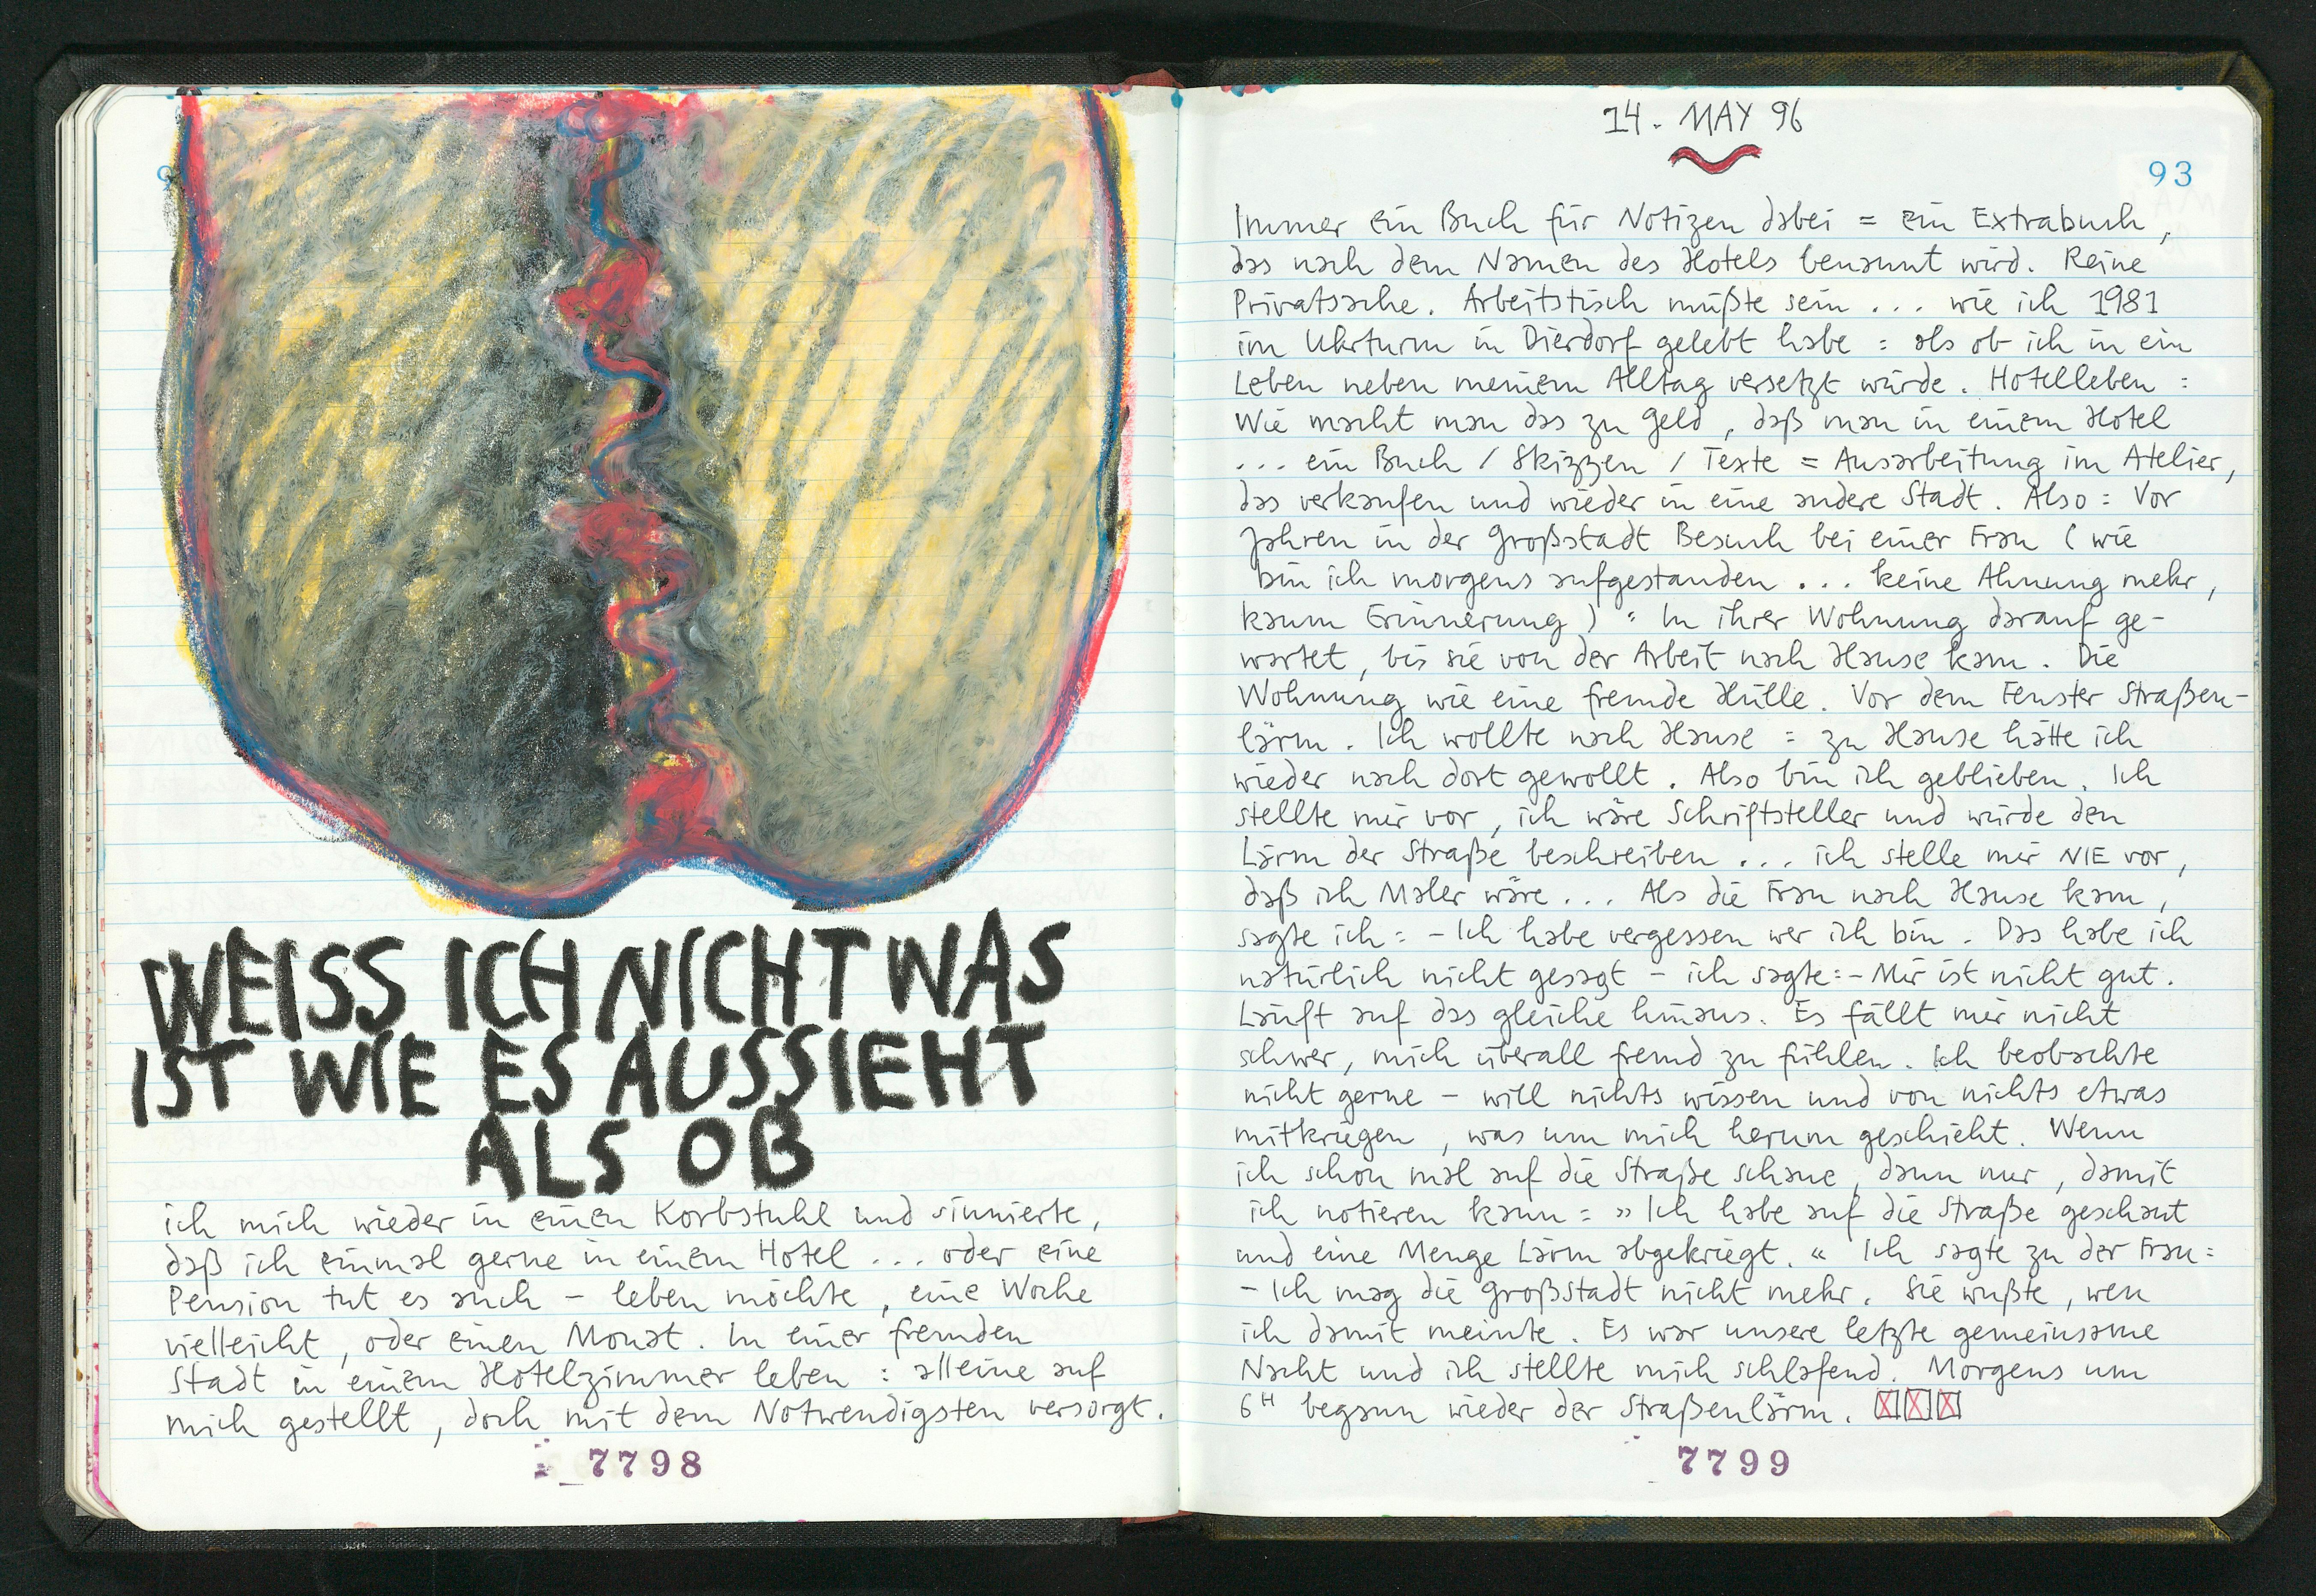 WEISS ICH NICHT WAS
IST WIE ES AUSSIEHT
ALS OB
ich mich wieder in einen Korbstuhl und sinnierte,
daß ich einmal gerne in einem Hotel ... oder eine
Pension tut es auch – leben möchte, eine Woche
vielleicht, oder einen Monat. In einer fremden
Stadt in einem Hotelzimmer leben : alleine auf
mich gestellt, doch mit dem Notwendigsten versorgt.
7798
14. MAY 96
93
Immer ein Buch für Notizen dabei = ein Extrabuch,
das nach dem Namen des Hotels benannt wird. Reine
Privatsache. Arbeitstisch müßte sein ... wie ich 1981
im Uhrturm in Dierdorf gelebt habe : als ob ich in ein
Leben neben meinem Alltag versetzt würde. Hotelleben :
Wie macht man das zu Geld, daß man in einem Hotel
... ein Buch / Skizzen / Texte = Ausarbeitung im Atelier,
das verkaufen und wieder in eine andere Stadt. Also : Vor
Jahren in der Großstadt Besuch bei einer Frau ( wie
bin ich morgens aufgestanden ... keine Ahnung mehr,
kaum Erinnerung ) : In ihrer Wohnung darauf ge-
wartet, bis sie von der Arbeit nach Hause kam. Die
Wohnung wie eine fremde Hülle. Vor dem Fenster Straßen-
lärm. Ich wollte nach Hause : zu Hause hätte ich
wieder nach dort gewollt. Also bin ich geblieben. Ich
stellte mir vor, ich wäre Schriftsteller und würde den
Lärm der Straße beschreiben ... ich stelle mir NIE vor,
daß ich Maler wäre ... Als die Frau nach Hause kam,
sagte ich : – Ich habe vergessen wer ich bin. Das habe ich
natürlich nicht gesagt – ich sagte : – Mir ist nicht gut.
Läuft auf das gleiche hinaus. Es fällt mir nicht
schwer, mich überall fremd zu fühlen. Ich beobachte
nicht gerne – will nichts wissen und von nichts etwas
mitkriegen, was um mich herum geschieht. Wenn
ich schon mal auf die Straße schaue, dann nur, damit
ich notieren kann : » Ich habe auf die Straße geschaut
und eine Menge Lärm abgekriegt. « Ich sagte zu der Frau :
– Ich mag die Großstadt nicht mehr. Sie wußte, wen
ich damit meinte. Es war unsere letzte gemeinsame
Nacht und ich stellte mich schlafend. Morgens um
6 H begann wieder der Straßenlärm.
7799